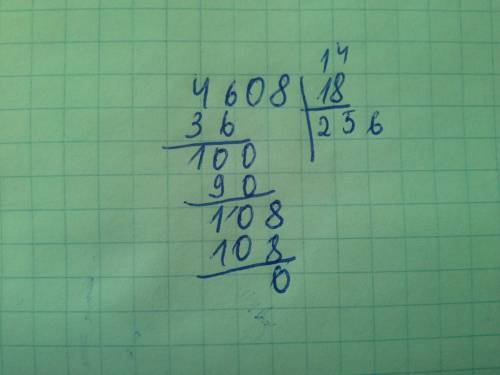 14
4608 18
36 256
100
90
108
108
0